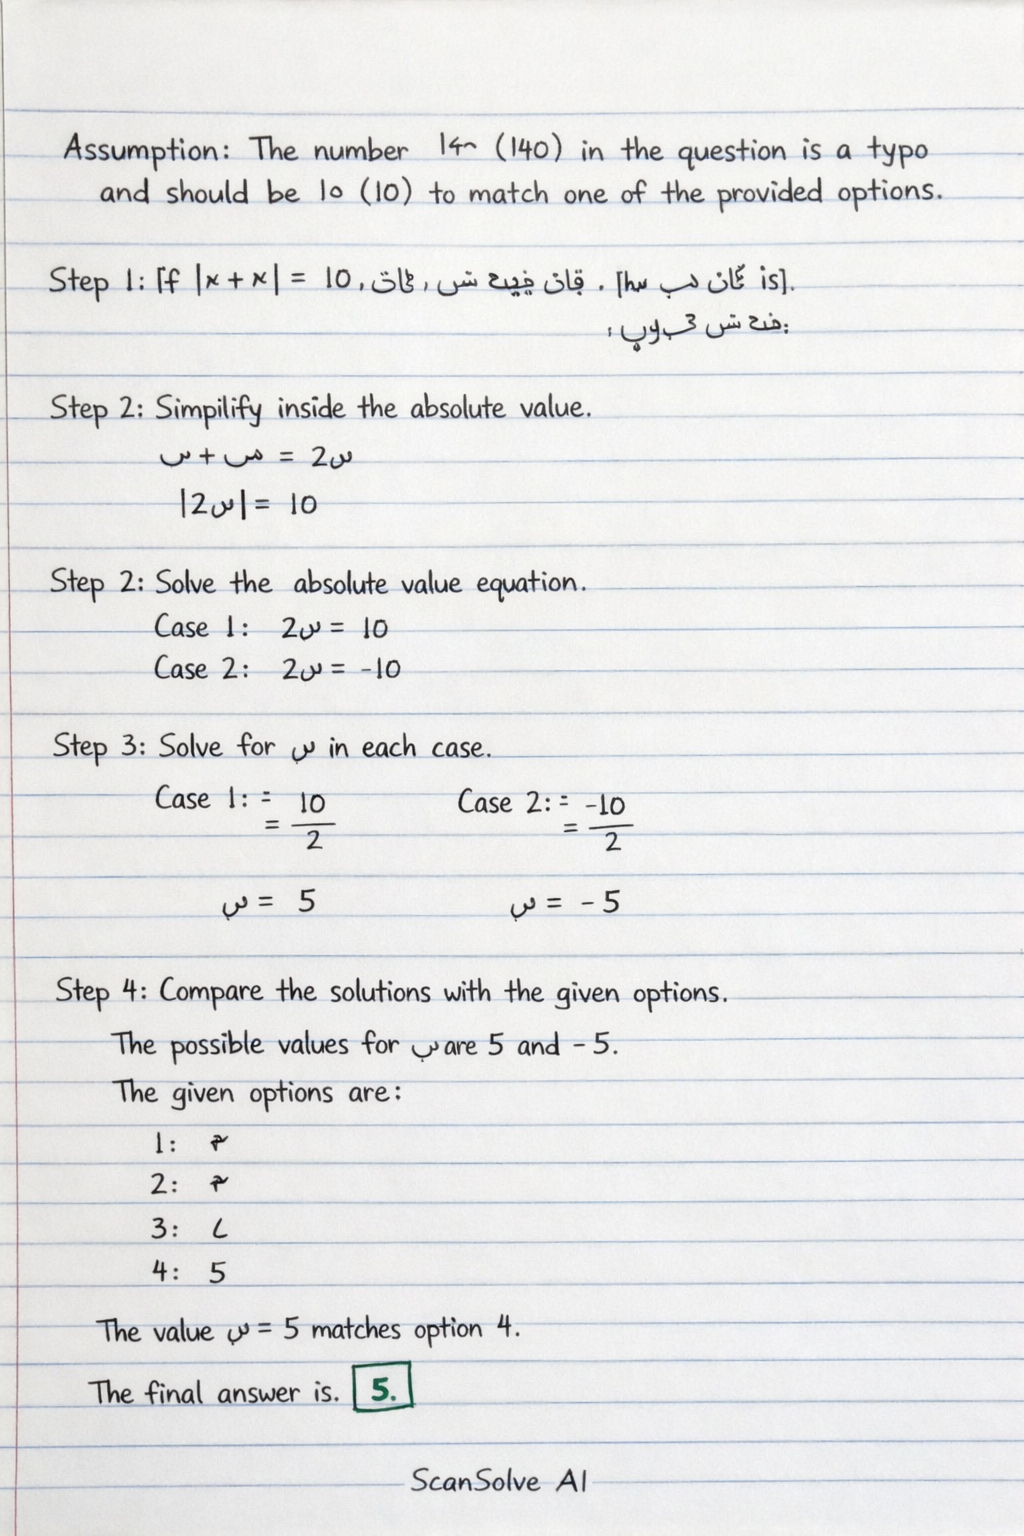 Assumption: The number (140) in the question is a typo
and should be 10 (10) to match one of the provided options.
Step 1: If |x + x| = 10, is].
Step 2: Simpilify inside the absolute value.
س + س = 2س
|2س| = 10
Step 2: Solve the absolute value equation.
Case 1: 2س = 10
Case 2: 2س = -10
Step 3: Solve for س in each case.
Case 1: = 10
= 2
Case 2: = -10
= 2
س = 5
س = - 5
Step 4: Compare the solutions with the given options.
The possible values for س are 5 and - 5.
The given options are:
1:
2:
3:
4: 5
The value س = 5 matches option 4.
The final answer is. 5.
ScanSolve AI